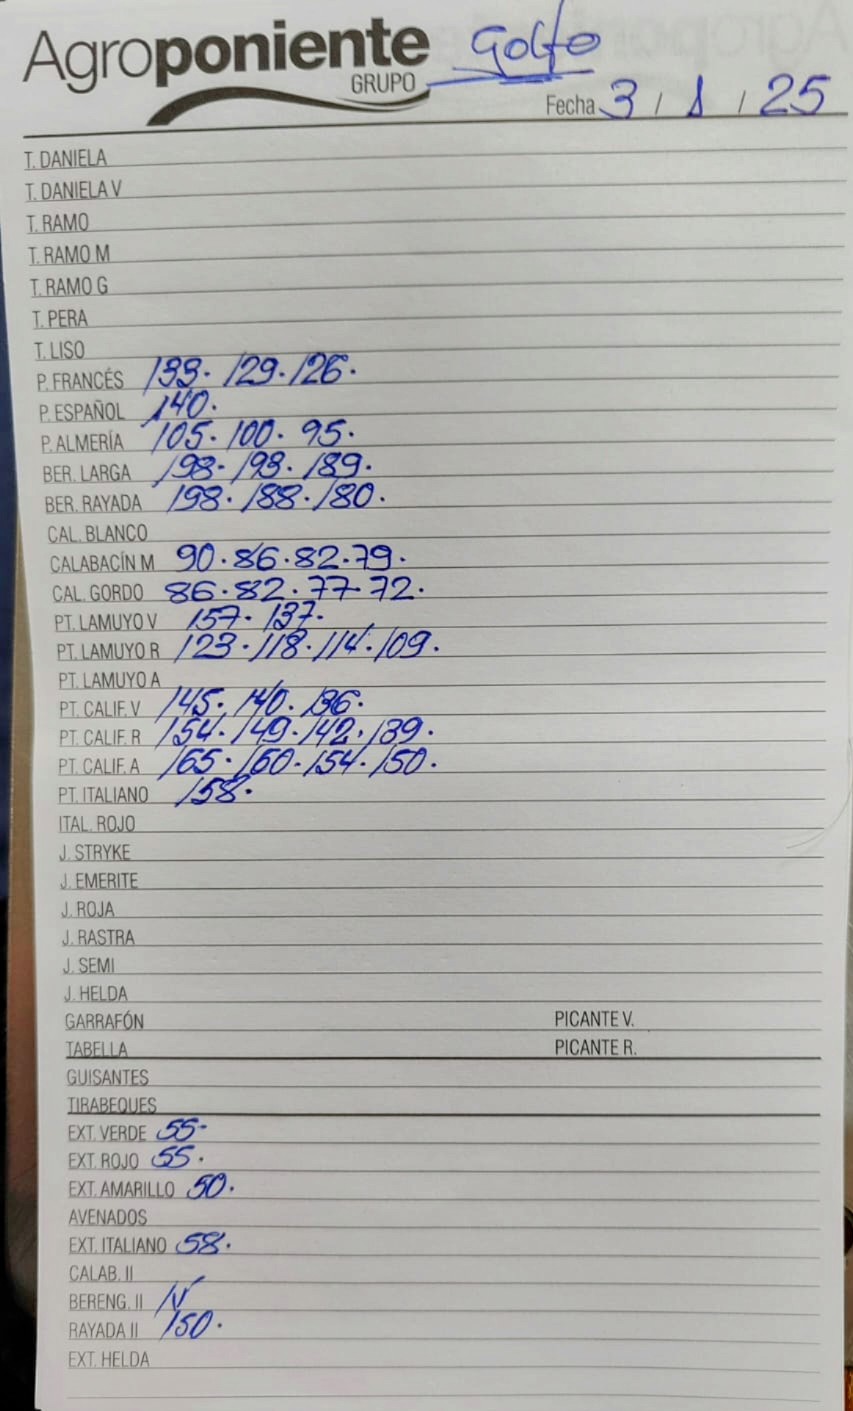 Agroponiente Golfo
GRUPO
Fecha 3 / 1 / 25
T. DANIELA
T. DANIELA V
T. RAMO
T. RAMO M
T. RAMO G
T. PERA
T. LISO
P. FRANCÉS 133. 129. 126.
P. ESPAÑOL 140.
P. ALMERÍA 105. 100. 95.
BER. LARGA 198. 193. 189.
BER. RAYADA 198. 188. 180.
CAL. BLANCO
CALABACÍN M 90. 86. 82. 79.
CAL. GORDO 86. 82. 77. 72.
PT. LAMUYO V 157. 137.
PT. LAMUYO R 123. 118. 114. 109.
PT. LAMUYO A
PT. CALIF. V 145. 140. 136.
PT. CALIF. R 154. 149. 142. 139.
PT. CALIF. A 165. 160. 154. 150.
PT. ITALIANO 158.
ITAL. ROJO
J. STRYKE
J. EMERITE
J. ROJA
J. RASTRA
J. SEMI
J. HELDA
GARRAFÓN PICANTE V.
TABELLA PICANTE R.
GUISANTES
TIRABEQUES
EXT. VERDE 55.
EXT. ROJO 55.
EXT. AMARILLO 50.
AVENADOS
EXT. ITALIANO 58.
CALAB. II
BERENG. II
RAYADA II 150.
EXT. HELDA